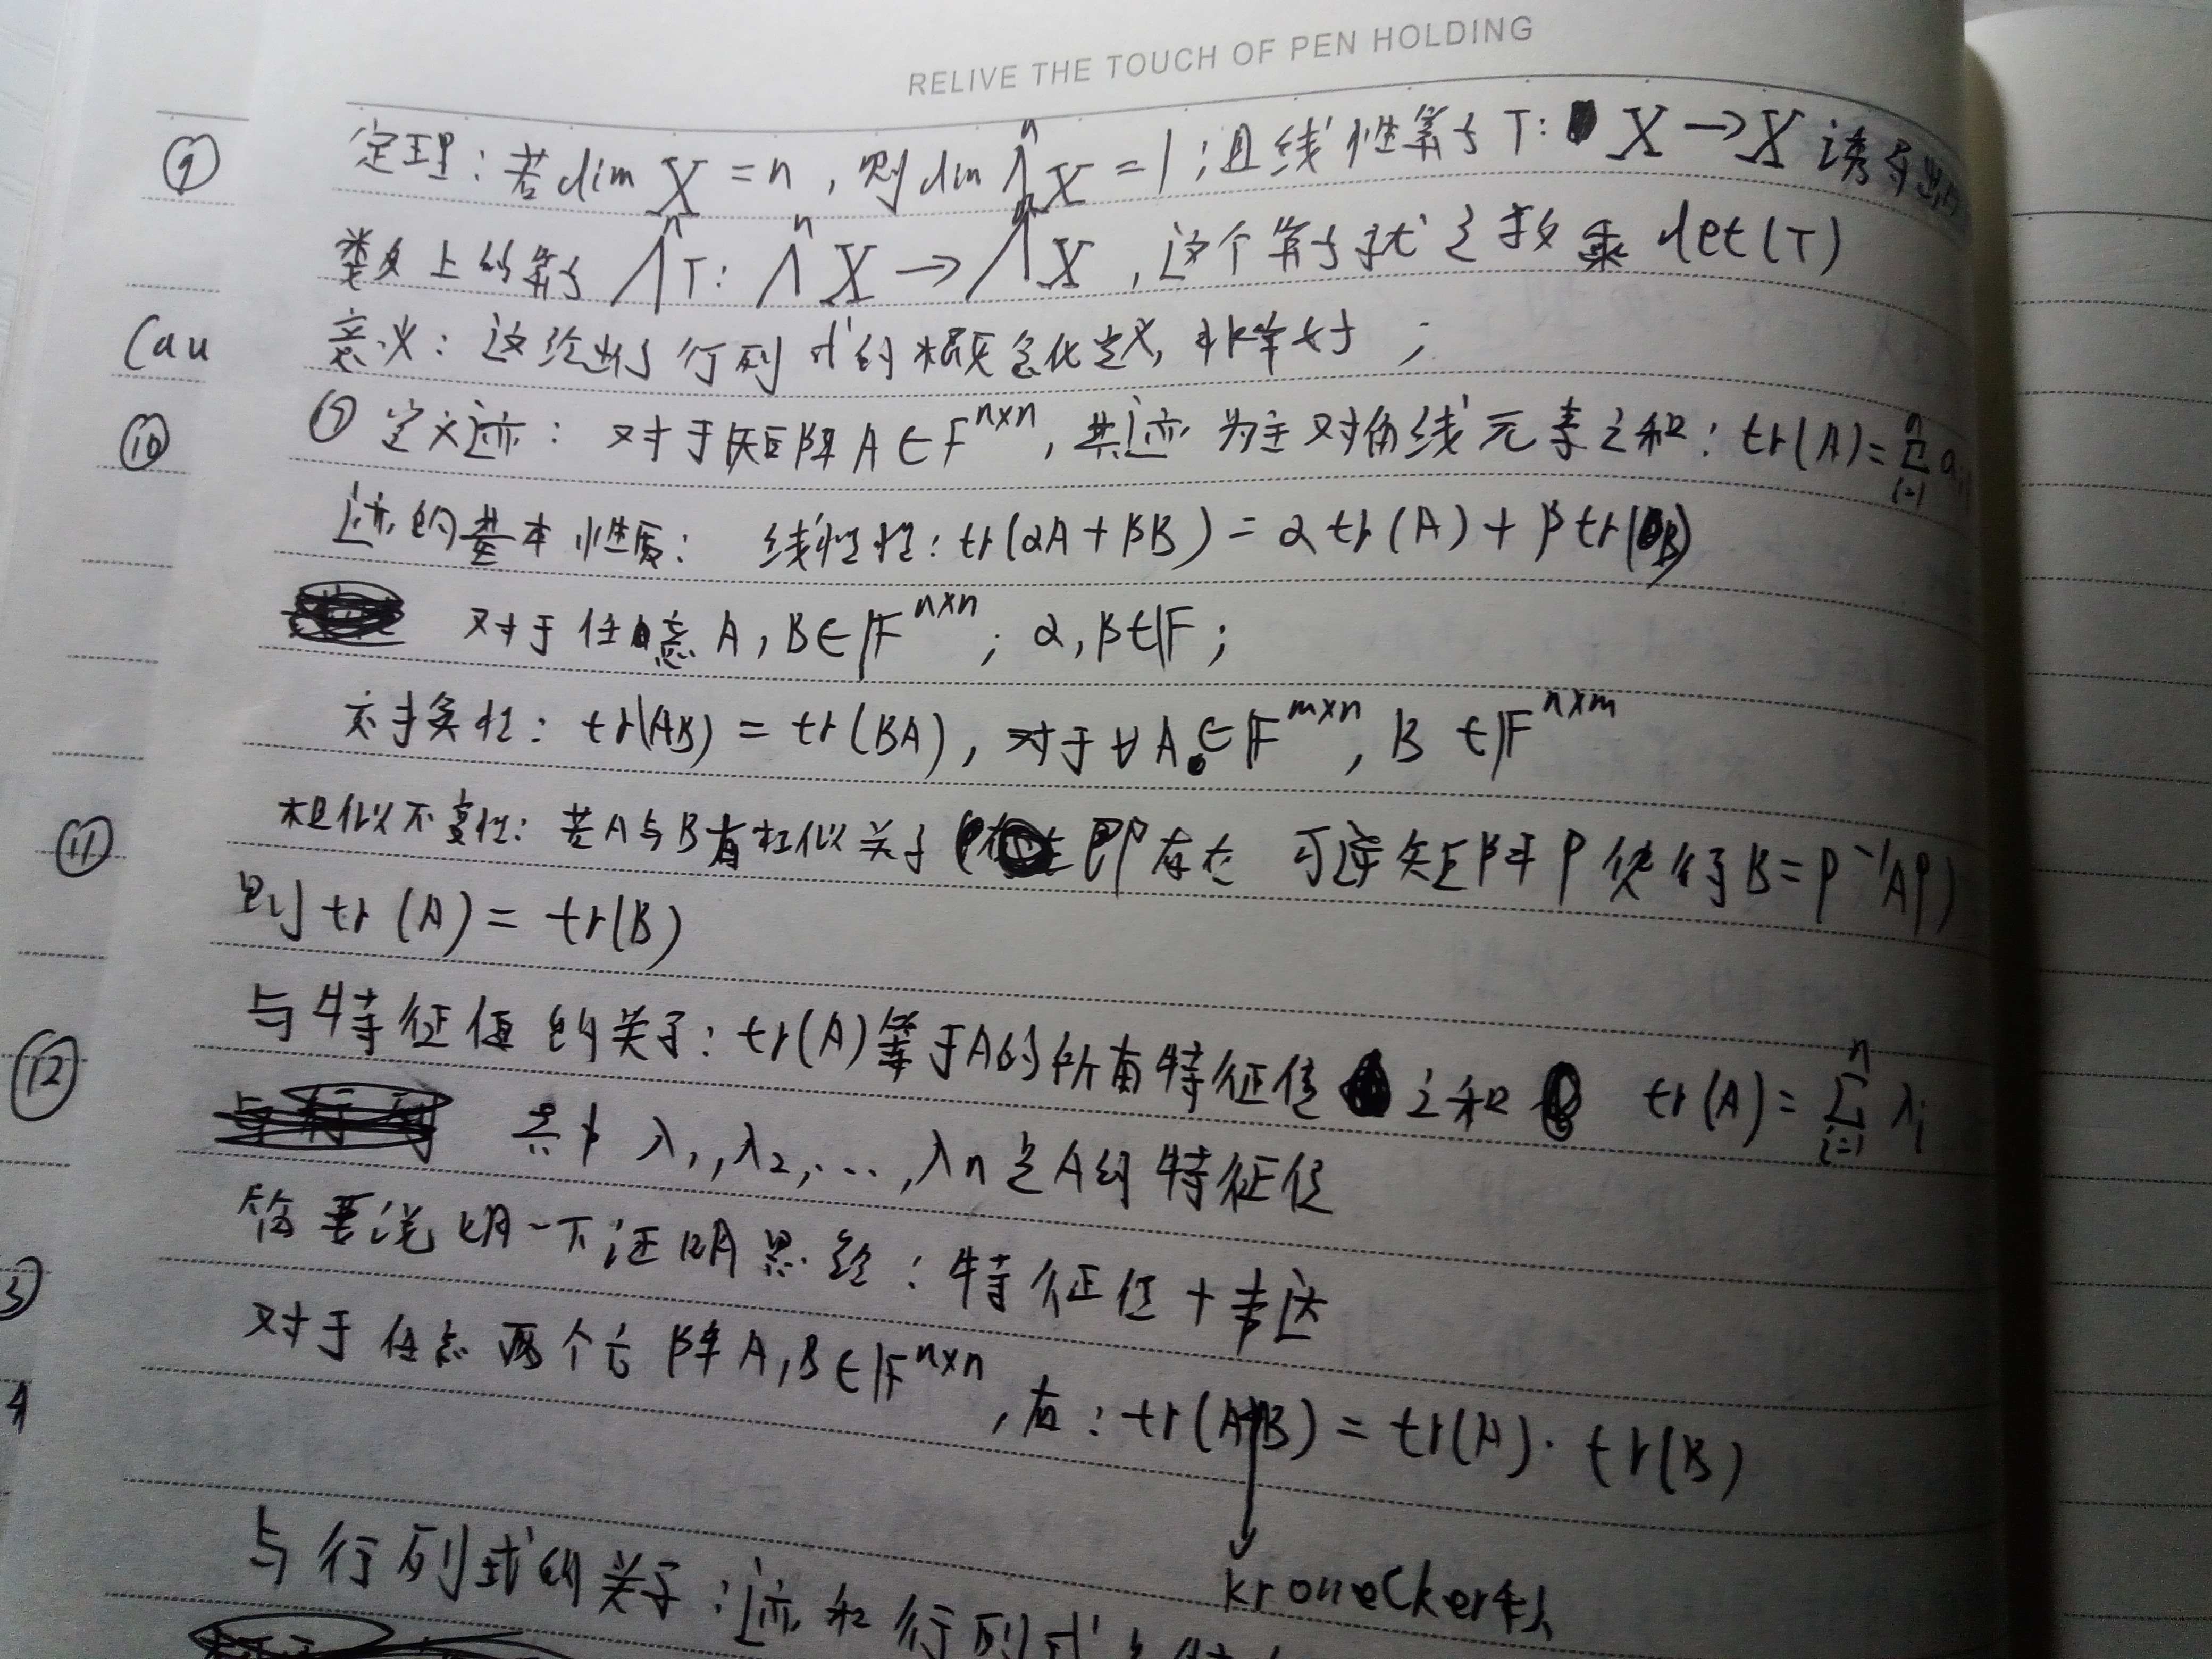 RELIVE THE TOUCH OF PEN HOLDING
⑨
定理：若dim X = n，则dim ΛⁿX = 1；且线性算子 T: X → X 诱导出的
类似上的算子 ΛⁿT: ΛⁿX → ΛⁿX，这个算子就是数乘 det(T)
Cau
意义：这给出了行列式的概念化定义，非常好；
⑩
① 定义迹：对于矩阵A∈F^{n×n}，其迹为主对角线元素之和：tr(A)=∑_{i=1}^{n} a
迹的基本性质：线性性：tr(αA+βB) = α tr(A) + β tr(B)
对于任意 A, B∈F^{n×n}; α, β∈F；
交换性：tr(AB) = tr(BA)，对于∀A∈F^{m×n}, B∈F^{n×m}
⑪
相似不变性：若A与B有相似关系(即存在可逆矩阵P使得B=P⁻¹AP)
则tr(A) = tr(B)
与特征值的关系：tr(A)等于A的所有特征值之和 tr(A)=∑_{i=1}^{n} λi
⑫
其中 λ₁, λ₂, …, λn是A的特征值
简要说明一下证明思路：特征值+韦达
对于任意两个方阵A,B∈F^{n×n}，有：tr(A B) = tr(A)·tr(B)
4
kronecker积
与行列式的关系：迹和行列式